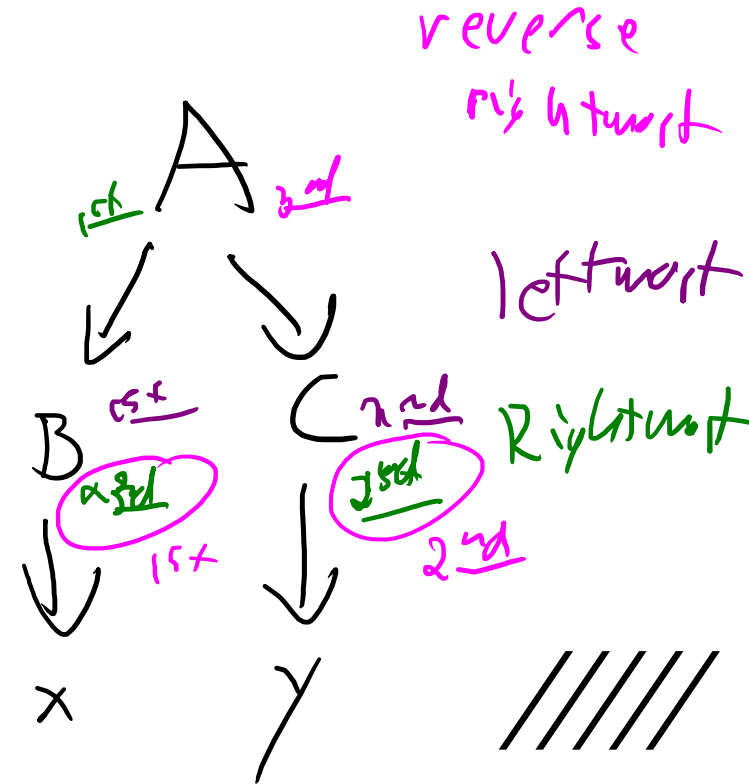 reverse
rightmost
A
1st
3rd
leftmost
B
1st
C
2nd
Rightmost
3rd
1st
2nd
x
y